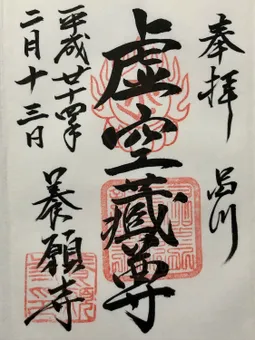 奉拝
品川
虚空蔵尊
平成廿四年
二月十三日
養願寺